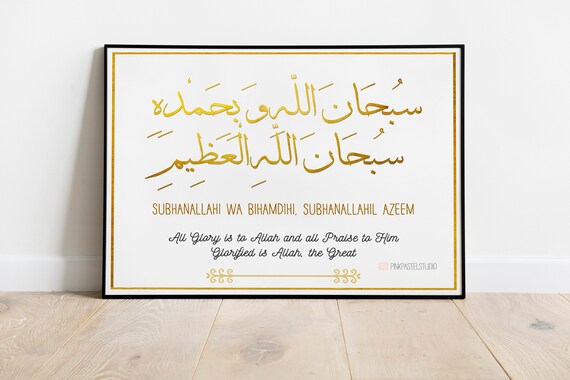 سُبْحَانَ اللّٰهِ وَ بِحَمْدِهِ
سُبْحَانَ اللّٰهِ الْعَظِيمِ
SUBHANALLAHI WA BIHAMDIHI, SUBHANALLAHIL AZEEM
All Glory is to Allah and all Praise to Him
Glorified is Allah, the Great
PINKPASTELSTUDIO